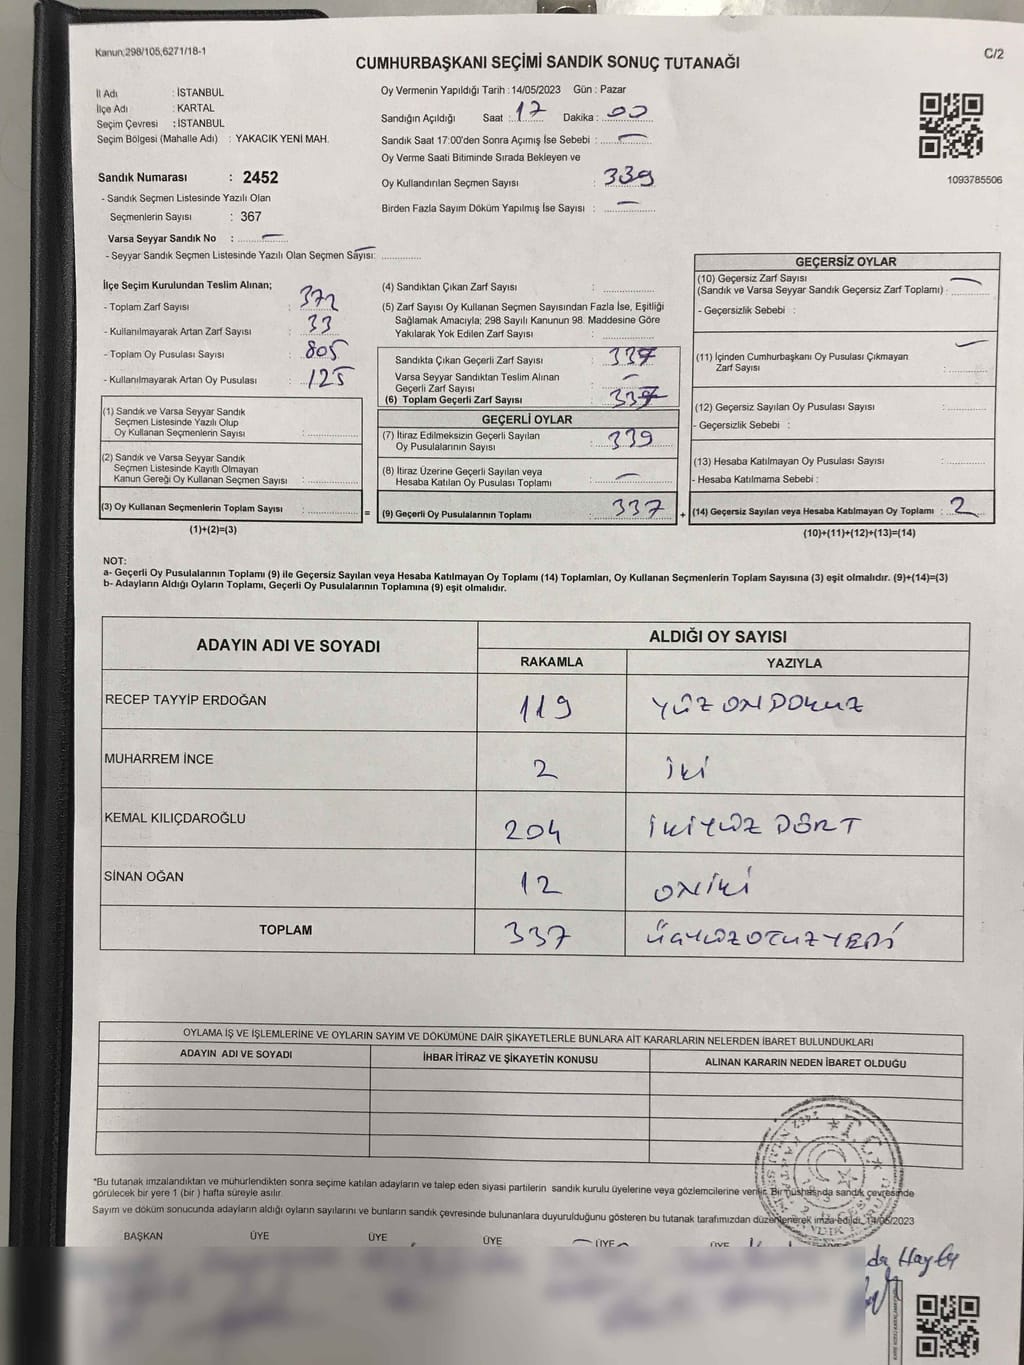 Kanun:298/105,6271/18-1
C/2
CUMHURBAŞKANI SEÇİMİ SANDIK SONUÇ TUTANAĞI
İl Adı : İSTANBUL
İlçe Adı : KARTAL
Seçim Çevresi : İSTANBUL
Seçim Bölgesi (Mahalle Adı) : YAKACIK YENİ MAH.
Sandık Numarası : 2452
- Sandık Seçmen Listesinde Yazılı Olan
Seçmenlerin Sayısı : 367
Varsa Seyyar Sandık No : —
- Seyyar Sandık Seçmen Listesinde Yazılı Olan Seçmen Sayısı: —
Oy Vermenin Yapıldığı Tarih : 14/05/2023 Gün : Pazar
Sandığın Açıldığı Saat : 17 Dakika : 00
Sandık Saat 17:00'den Sonra Açımış İse Sebebi : —
Oy Verme Saati Bitiminde Sırada Bekleyen ve
Oy Kullandırılan Seçmen Sayısı : 339
Birden Fazla Sayım Döküm Yapılmış İse Sayısı : —
1093785506
İlçe Seçim Kurulundan Teslim Alınan;
- Toplam Zarf Sayısı : 372
- Kullanılmayarak Artan Zarf Sayısı : 33
- Toplam Oy Pusulası Sayısı : 805
- Kullanılmayarak Artan Oy Pusulası : 125
(1) Sandık ve Varsa Seyyar Sandık
Seçmen Listesinde Yazılı Olup
Oy Kullanan Seçmenlerin Sayısı :
(2) Sandık ve Varsa Seyyar Sandık
Seçmen Listesinde Kayıtlı Olmayan
Kanun Gereği Oy Kullanan Seçmen Sayısı :
(3) Oy Kullanan Seçmenlerin Toplam Sayısı : =
(1)+(2)=(3)
(4) Sandıktan Çıkan Zarf Sayısı :
(5) Zarf Sayısı Oy Kullanan Seçmen Sayısından Fazla İse, Eşitliği
Sağlamak Amacıyla; 298 Sayılı Kanunun 98. Maddesine Göre
Yakılarak Yok Edilen Zarf Sayısı :
Sandıkta Çıkan Geçerli Zarf Sayısı : 337
Varsa Seyyar Sandıktan Teslim Alınan
Geçerli Zarf Sayısı : —
(6) Toplam Geçerli Zarf Sayısı : 337
GEÇERLİ OYLAR
(7) İtiraz Edilmeksizin Geçerli Sayılan
Oy Pusulalarının Sayısı : 339
(8) İtiraz Üzerine Geçerli Sayılan veya
Hesaba Katılan Oy Pusulası Toplamı : —
(9) Geçerli Oy Pusulalarının Toplamı : 337 +
GEÇERSİZ OYLAR
(10) Geçersiz Zarf Sayısı
(Sandık ve Varsa Seyyar Sandık Geçersiz Zarf Toplamı) : —
- Geçersizlik Sebebi :
(11) İçinden Cumhurbaşkanı Oy Pusulası Çıkmayan
Zarf Sayısı : —
(12) Geçersiz Sayılan Oy Pusulası Sayısı :
- Geçersizlik Sebebi :
(13) Hesaba Katılmayan Oy Pusulası Sayısı :
- Hesaba Katılmama Sebebi :
(14) Geçersiz Sayılan veya Hesaba Katılmayan Oy Toplamı : 2
(10)+(11)+(12)+(13)=(14)
NOT:
a- Geçerli Oy Pusulalarının Toplamı (9) ile Geçersiz Sayılan veya Hesaba Katılmayan Oy Toplamı (14) Toplamları, Oy Kullanan Seçmenlerin Toplam Sayısına (3) eşit olmalıdır. (9)+(14)=(3)
b- Adayların Aldığı Oyların Toplamı, Geçerli Oy Pusulalarının Toplamına (9) eşit olmalıdır.
ADAYIN ADI VE SOYADI ALDIĞI OY SAYISI
RAKAMLA YAZIYLA
RECEP TAYYİP ERDOĞAN 119 YÜZ ONDOKUZ
MUHARREM İNCE 2 İKİ
KEMAL KILIÇDAROĞLU 204 İKİYÜZ DÖRT
SİNAN OĞAN 12 ONİKİ
TOPLAM 337 ÜÇYÜZOTUZYEDİ
OYLAMA İŞ VE İŞLEMLERİNE VE OYLARIN SAYIM VE DÖKÜMÜNE DAİR ŞİKAYETLERLE BUNLARA AİT KARARLARIN NELERDEN İBARET BULUNDUKLARI
ADAYIN ADI VE SOYADI İHBAR İTİRAZ VE ŞİKAYETİN KONUSU ALINAN KARARIN NEDEN İBARET OLDUĞU
*Bu tutanak imzalandıktan ve mühürlendikten sonra seçime katılan adayların ve talep eden siyasi partilerin sandık kurulu üyelerine veya gözlemcilerine verilir. Bir nüshası da sandık çevresinde
görülecek bir yere 1 (bir ) hafta süreyle asılır.
Sayım ve döküm sonucunda adayların aldığı oyların sayılarını ve bunların sandık çevresinde bulunanlara duyurulduğunu gösteren bu tutanak tarafımızdan düzenlenerek imza edildi. 14/05/2023
BAŞKAN ÜYE ÜYE ÜYE ÜYE ÜYE
T.C.